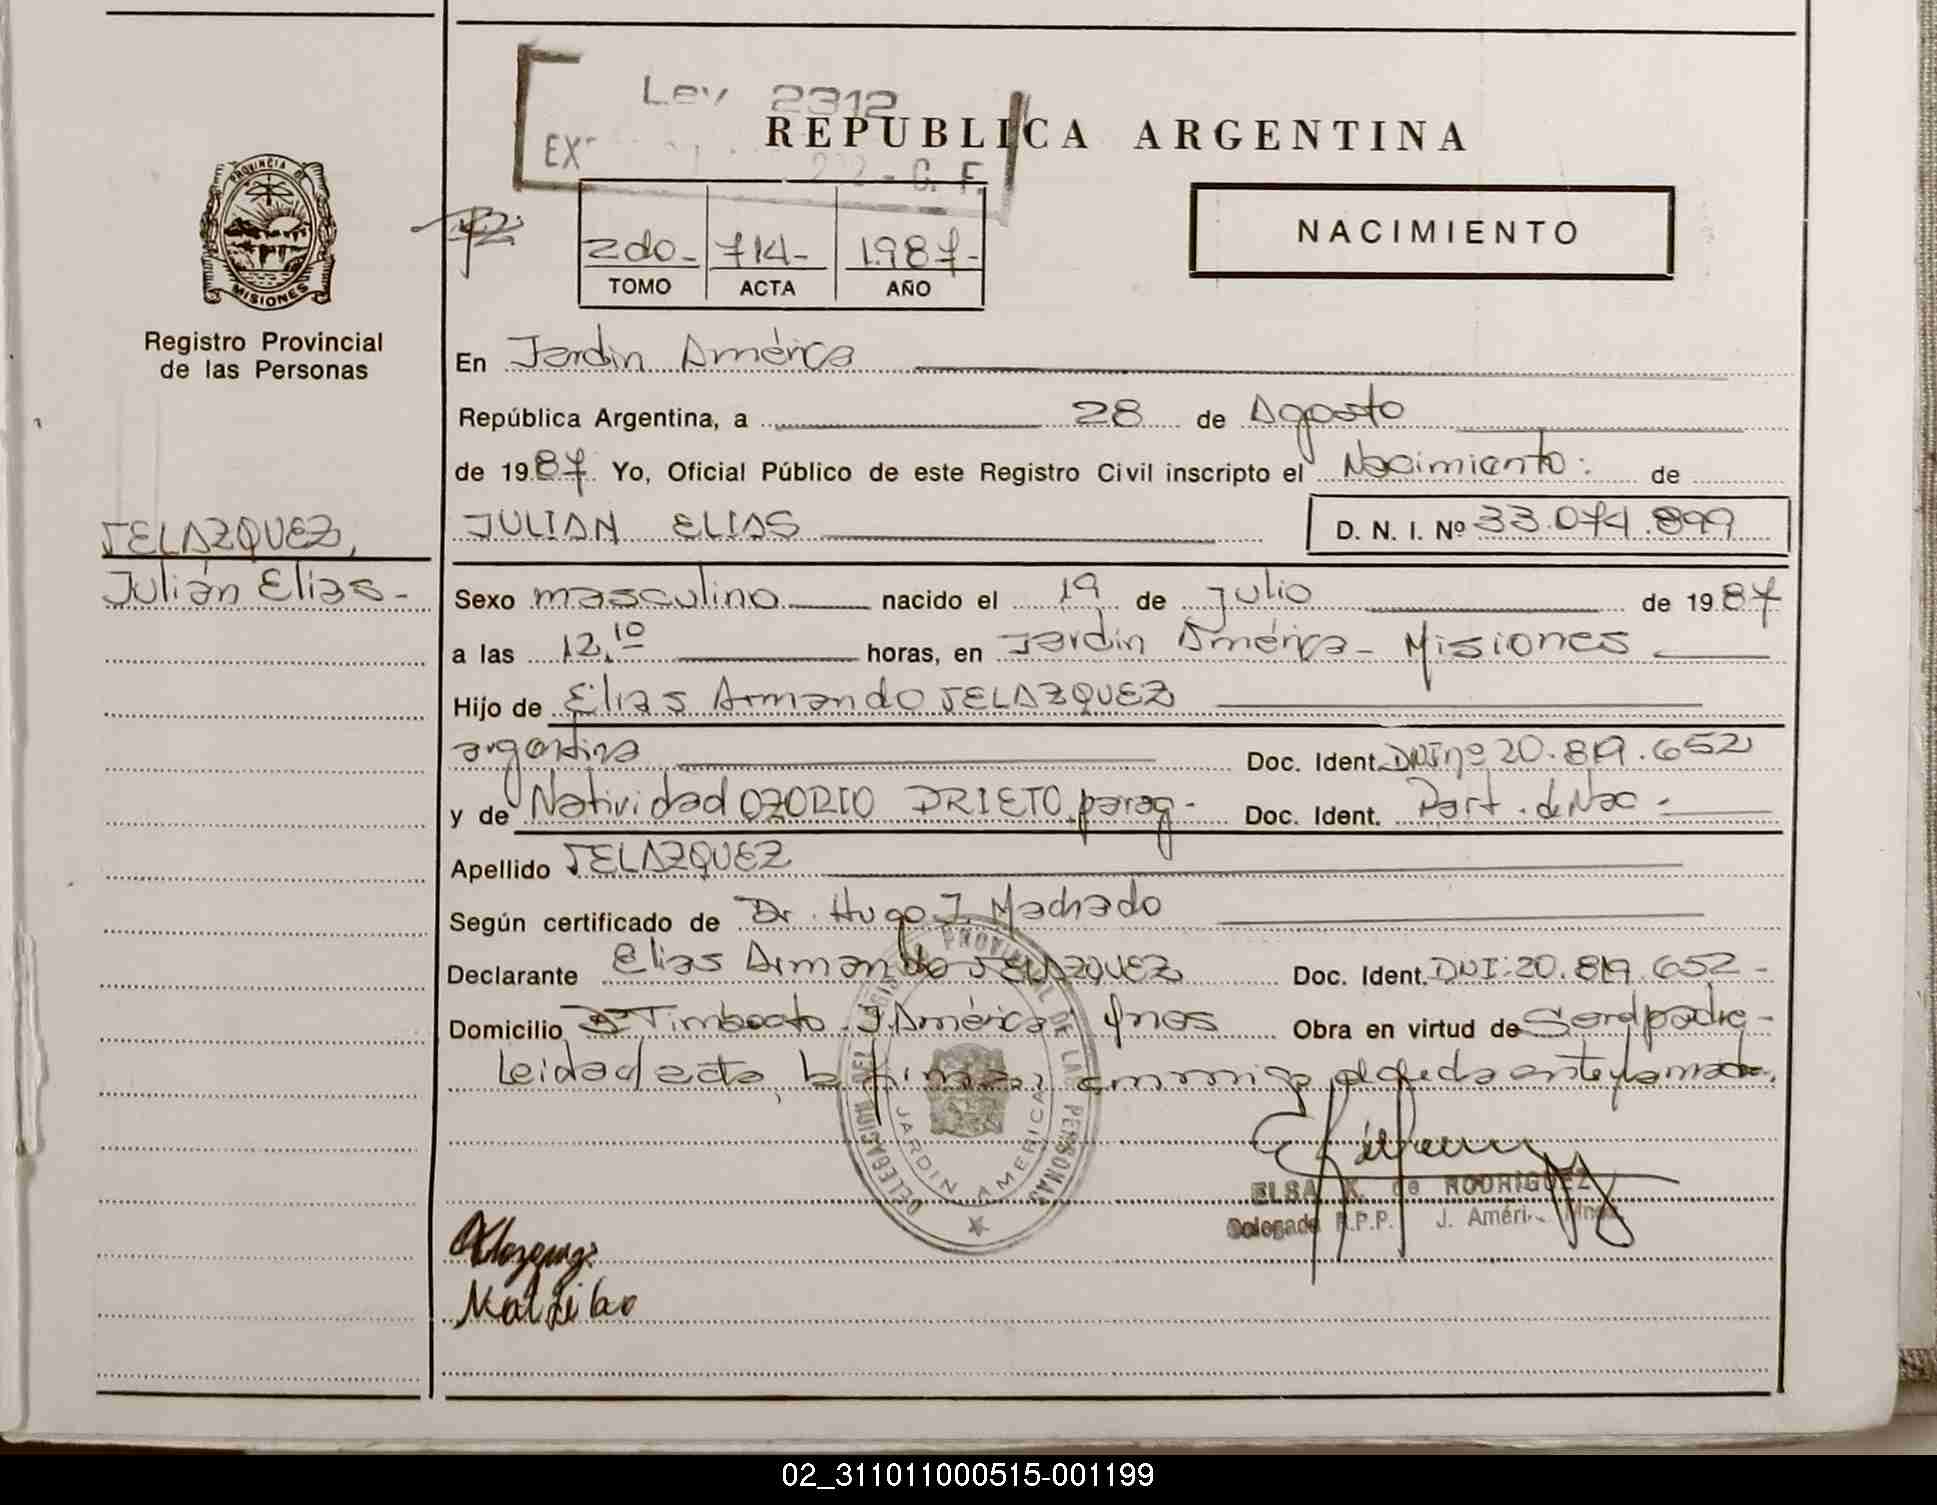 Ley 2312
REPUBLICA ARGENTINA
EX
22 - C. F.
PROVINCIA DE
MISIONES
NACIMIENTO
2do- 714- 1.987-
TOMO ACTA AÑO
Registro Provincial
de las Personas
En Jardin América
República Argentina, a 28 de Agosto
de 1987 Yo, Oficial Público de este Registro Civil inscripto el Nacimiento: de
VELAZQUEZ,
JULIAN ELIAS D. N. I. Nº 33.074.899
Julián Elias-
Sexo masculino nacido el 19 de julio de 1987
a las 12,10 horas, en Jardin América - Misiones
Hijo de Elias Armando VELAZQUEZ
argentina Doc. Ident. DNI nº 20.819.652
y de Natividad OZORIO PRIETO, parag- Doc. Ident. Part. de Nac.-
Apellido VELAZQUEZ
Según certificado de Dr. Hugo J. Machado
Declarante Elias Armando VELAZQUEZ Doc. Ident. DNI: 20.819.652-
Domicilio Bº Timboato. J. América Mnes Obra en virtud de Ser el padre-
Leida el acta, la firma, conmigo, el padre ante y la madre.
DELEGACION DEL REGISTRO PROVINCIAL DE LAS PERSONAS
JARDIN AMERICA
ELSA K. de RODRIGUEZ
Delegada R.P.P. J. Améri. Mnes
02_311011000515-001199